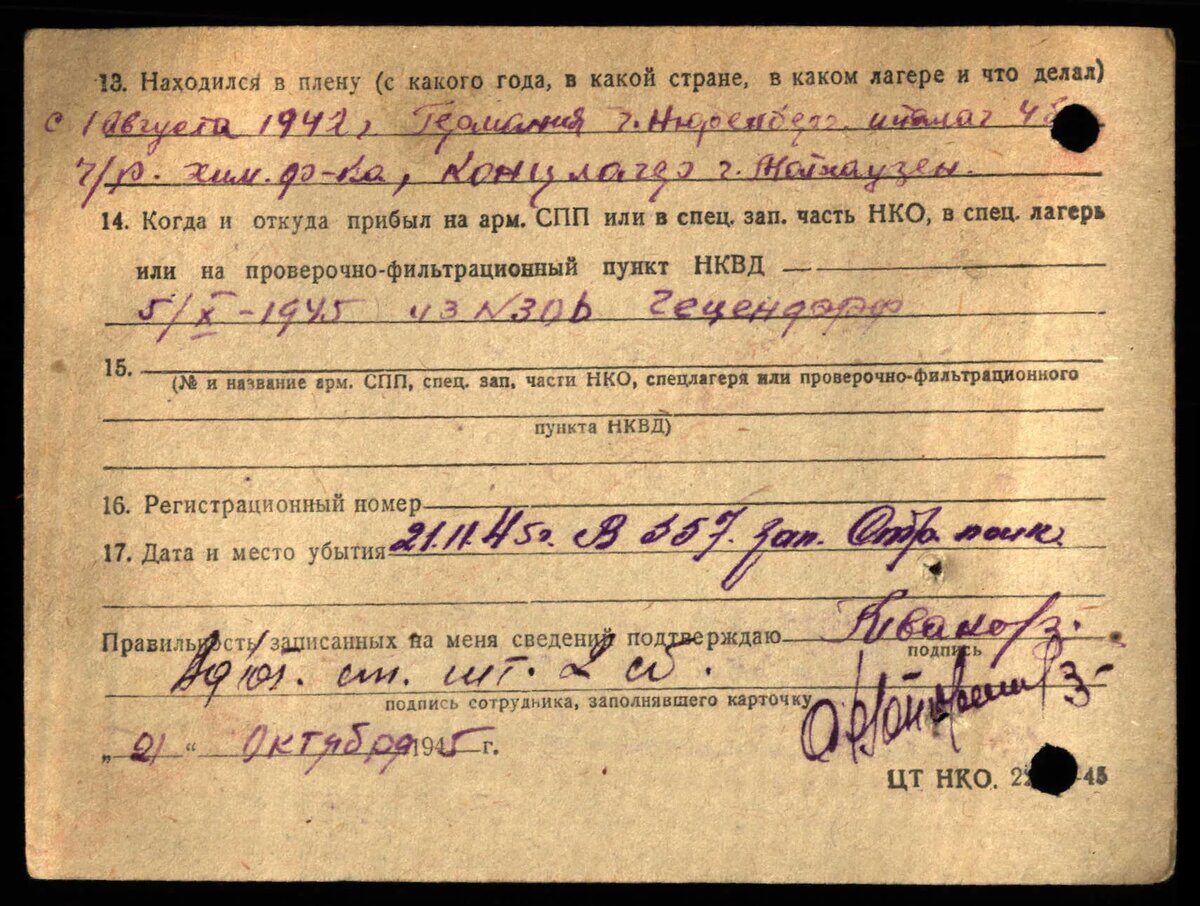 13. Находился в плену (с какого года, в какой стране, в каком лагере и что делал)
с 1 августа 1942, Германия г. Нюренберг. шталаг 4б
ч/р. хим. ф-ка, Концлагер г. Матхаузен.
14. Когда и откуда прибыл на арм. СПП или в спец. зап. часть НКО, в спец. лагерь
или на проверочно-фильтрационный пункт НКВД
5/X-1945 из
15.
(№ и название арм. СПП, спец. зап. части НКО, спецлагеря или проверочно-фильтрационного
пункта НКВД)
16. Регистрационный номер
17. Дата и место убытия 21.11.45г. В 357. зап. Стр. полк.
Правильность записанных на меня сведений подтверждаю
подпись
Адъют. ст. шт. 2 сб.
подпись сотрудника, заполнявшего карточку
„21“ Октября 1945 г.
ЦТ НКО. 22 -45